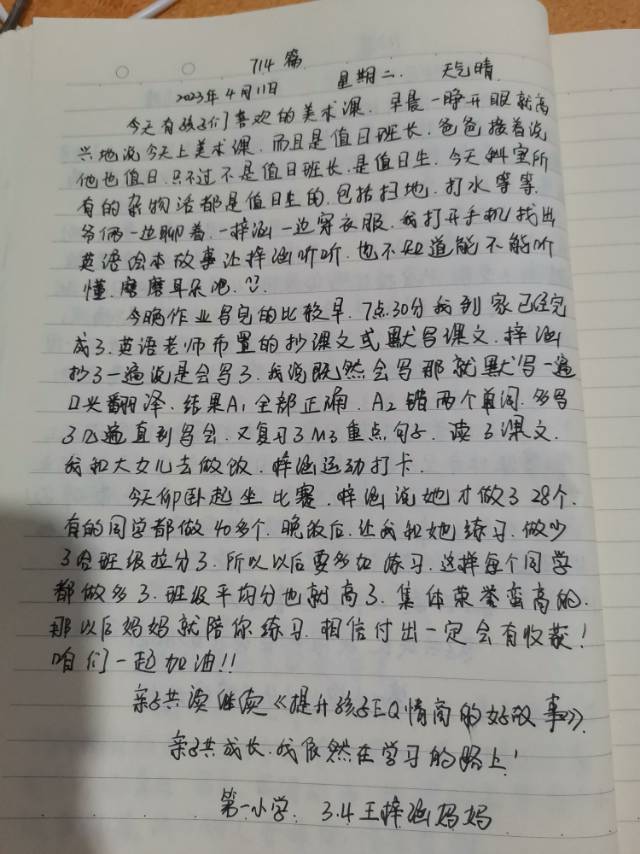 714篇
2023年4月11日 星期二. 天气晴
今天有孩子们喜欢的美术课. 早晨一睁开眼就高
兴地说今天上美术课. 而且是值日班长. 爸爸接着说
他也值日. 只不过不是值日班长. 是值日生. 今天科室所
有的杂物活都是值日生的. 包括扫地. 打水等等.
爷俩一边聊着. 一梓涵一边穿衣服. 我打开手机找出
英语绘本故事让梓涵听听. 也不知道能不能听
懂. 磨磨耳朵吧.
今晚作业写完的比较早. 7点30分我到家已经完
成了. 英语老师布置的抄课文或默写课文. 梓涵
抄了一遍说是会写了. 我说既然会写那就默写一遍
口头翻译. 结果A1全部正确. A2错两个单词. 多写
了几遍直到写会. 又复习了M3重点句子. 读了课文.
我和大女儿去做饭. 梓涵运动打卡.
今天仰卧起坐比赛. 梓涵说她才做了28个.
有的同学都做40多个. 晚饭后. 让我和她练习. 做少
了给班级拉分了. 所以以后要多加练习. 这样每个同学
都做多了. 班级平均分也就高了. 集体荣誉蛮高的.
那以后妈妈就陪你练习. 相信付出一定会有收获!
咱们一起加油!!
亲子共读继续《提升孩子EQ情商的好故事》.
亲子共成长. 我依然在学习的路上!
第一小学. 3.4王梓涵妈妈